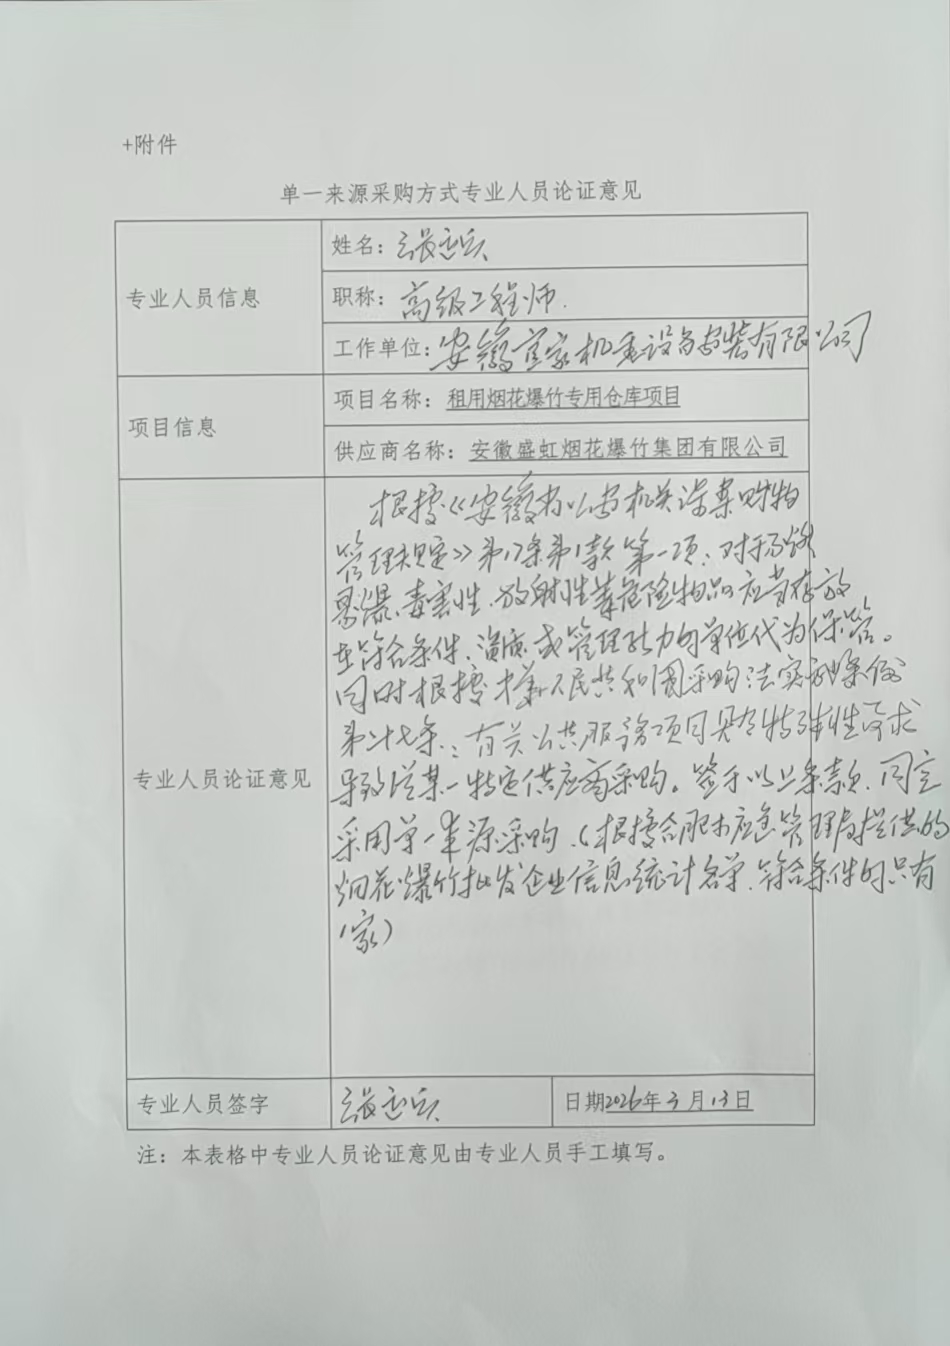 +附件
单一来源采购方式专业人员论证意见
专业人员信息
姓名：张
职称：高级工程师.
工作单位：安徽宜家机电设备安装有限公司
项目信息
项目名称：租用烟花爆竹专用仓库项目
供应商名称：安徽盛虹烟花爆竹集团有限公司
专业人员论证意见
根据《安徽省公安机关涉案财物
管理规定》第17条第1款第一项：对于易燃
易爆、毒害性、放射性等危险物品应当存放
至符合条件、资质或管理能力的单位代为保管。
同时根据中华人民共和国采购法实施条例
第二十七条：有关公共服务项目具有特殊性要求
导致从某一特定供应商采购。鉴于以上条款，同意
采用单一来源采购，（根据合肥市应急管理局提供的
烟花爆竹批发企业信息统计名单，符合条件的只有
1家）
专业人员签字
张
日期2026年3月13日
注：本表格中专业人员论证意见由专业人员手工填写。